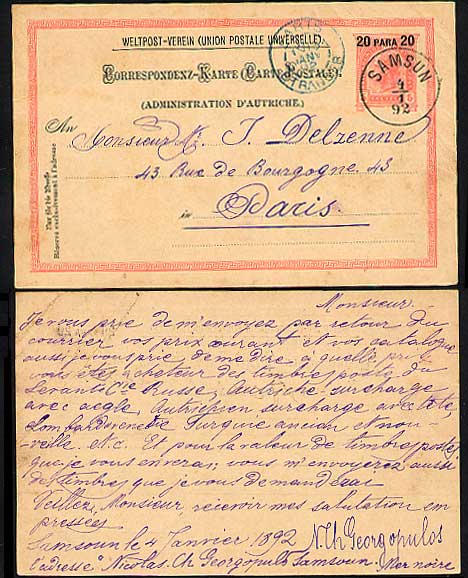 WELTPOST-VEREIN (UNION POSTALE UNIVERSELLE).
20 PARA 20
PARIS ETRANGER
CORRESPONDENZ-KARTE (CARTE POSTALE).
(ADMINISTRATION D'AUTRICHE)
SAMSUN 4/1 92
An Monsieur J. Delzenne
43 Rue de Bourgogne. 43
in Paris.
Nur für die Adresse
Réservé exclusivement à l'adresse
Monsieur
Je vous prie de m'envoyez par retour du
courrier vos prix courant et vos catalogue
aussi je vous prie de me dire à quelle prix
vous êtes acheteur des timbres poste du
Levant: Cie Russe, Autriche surcharge
avec aegle, Autrichien surcharge avec tête,
Lombardo venetie Turquie ancian et nou-
veille. etc. Et pour la valeur de timbres postes
que je vous enverai, vous m'envoyerez aussi
des timbres que je vous demanderai
Veillez, Monsieur recevoir mes salutation em
pressées
Samsoun le 4 Janvier 1892 N. Ch Georgopulos
L'adresse Nicolas. Ch Georgopulo Samsoun. Mer noire